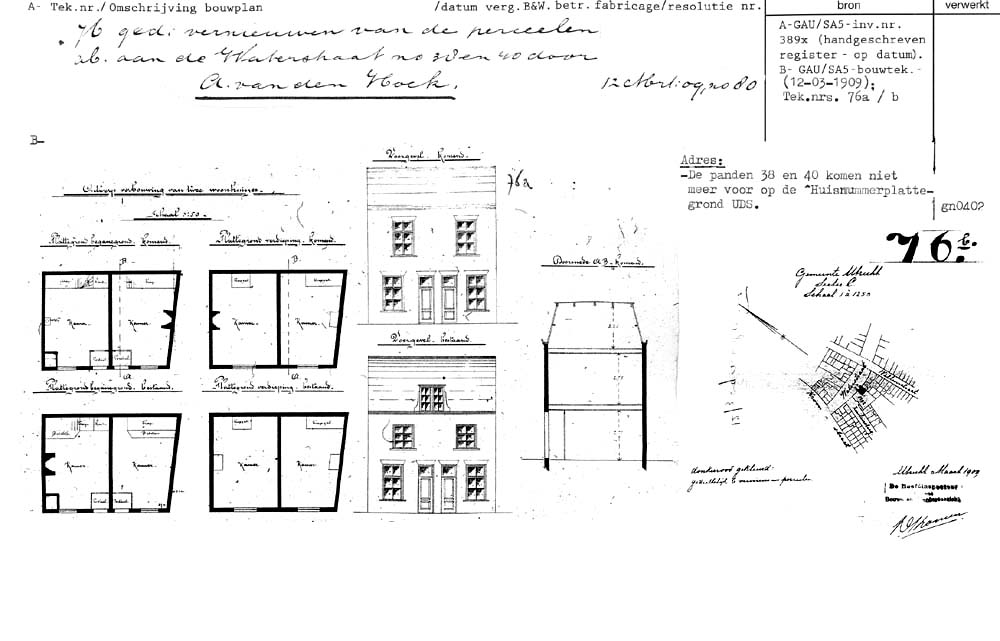 A- Tek.nr./Omschrijving bouwplan /datum verg.B&W. betr. fabricage/resolutie nr.
bron
verwerkt
76 ged: vernieuwen van de perceelen
a.b. aan de Waterstraat no 38 en 40 door
A. van den Hoek. 12 Mrt: 09, no 80
A-GAU/SA5-inv.nr.
389x (handgeschreven
register - op datum).
B- GAU/SA5-bouwtek.-
(12-03-1909);
Tek.nrs. 76a / b
B-
Adres:
-De panden 38 en 40 komen niet
meer voor op de "Huisnummerplatte-
grond UDS.
gn0402
verbouwing van twee woonhuizen.
Schaal 1:50.
Voorgevel. Komend.
76a
Plattegrond beganegrond. Komend.
Plattegrond verdieping. Komend.
Doorsnede A B. Komend.
B
B
Kamer.
Kamer.
Kamer.
Kamer.
A
A
Voorgevel. bestaand.
Plattegrond beganegrond. bestaand.
Plattegrond verdieping. bestaand.
Kamer.
Kamer.
Kamer.
Kamer.
76b.
Gemeente Utrecht
Sectie C
Schaal 1 à 1250
donkerrood gekleurd:
gedeeltelijk te vernieuwen perceelen
Utrecht Maart 1909
De Hoofdinspecteur